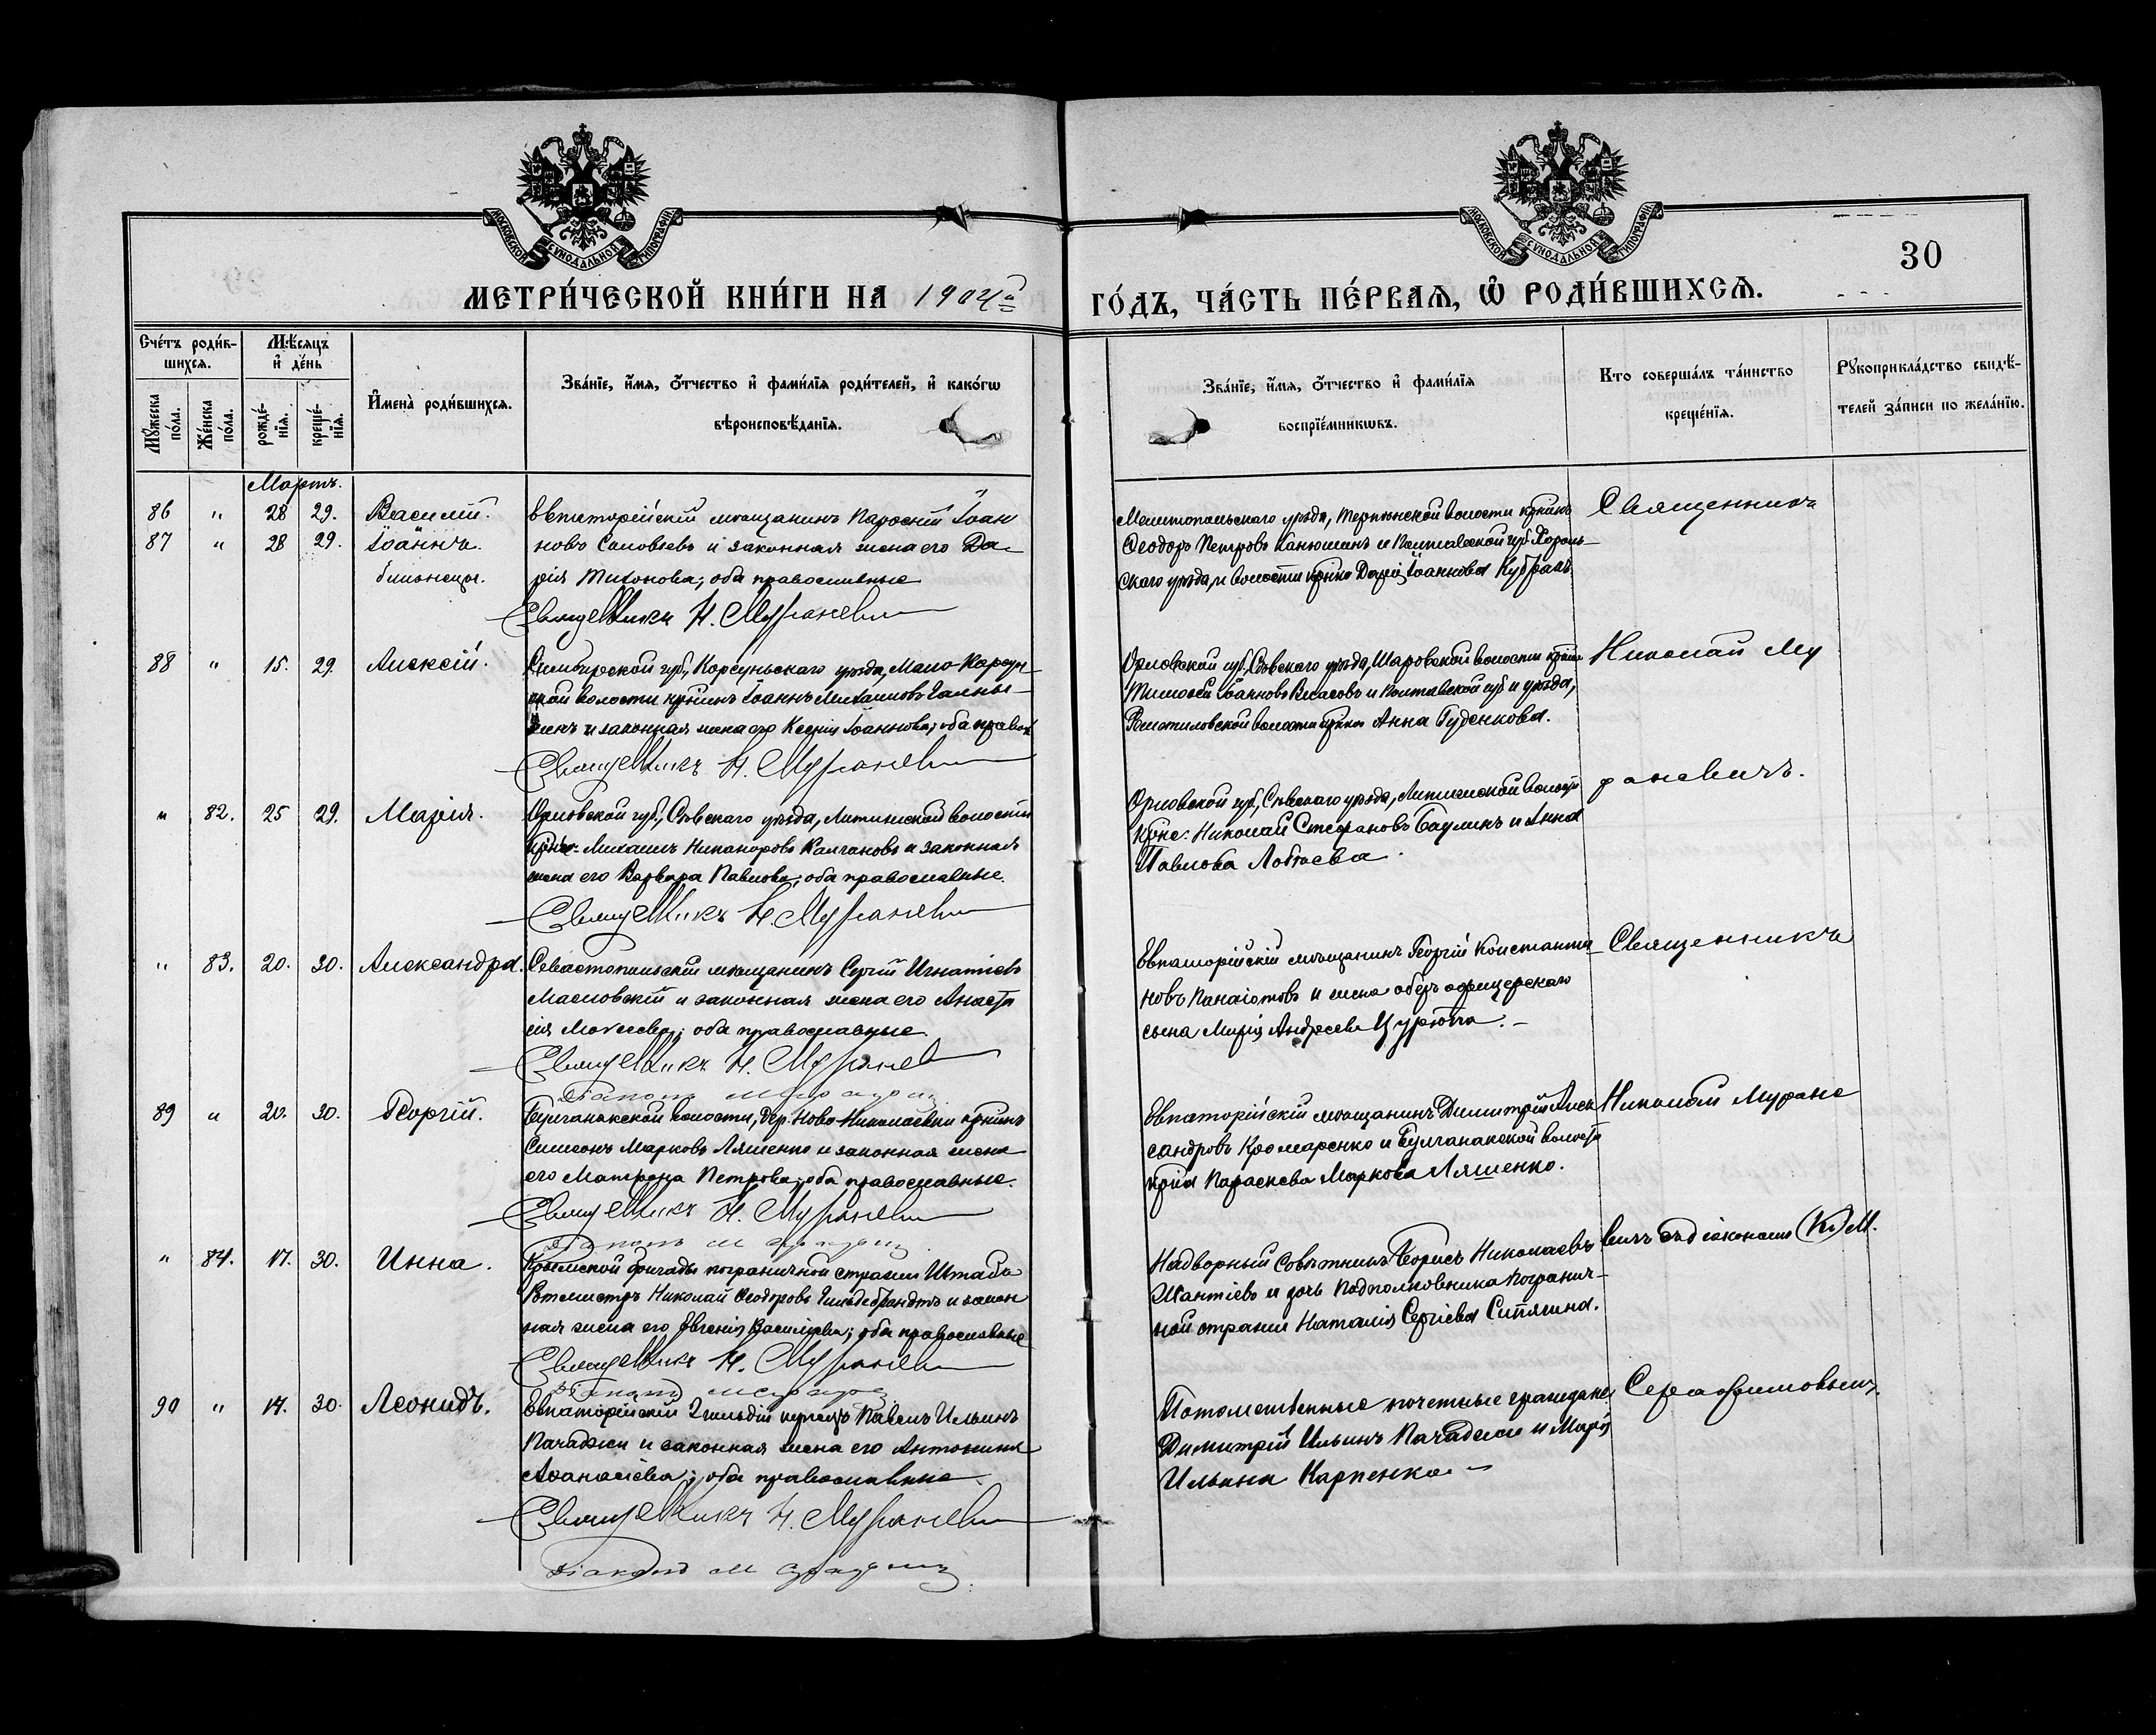 МОСКОВСКОЙ СѴНОДАЛЬНОЙ ТИПОГРАФІИ
МОСКОВСКОЙ СѴНОДАЛЬНОЙ ТИПОГРАФІИ
30
МЕТРИ́ЧЕСКОЙ КНИ́ГИ НА 1904й ГО́ДЪ, ЧА́СТЬ ПЕ́РВАѦ, Ѽ РОДИ́ВШИХСѦ.
Сче́тъ роди́в-
шихсѧ.
Мѣ́сѧцъ
и҆ де́нь
Мꙋ́жеска по́ла.
Же́нска по́ла.
рожде́-
нїѧ.
креще́-
нїѧ.
И҆мена̀ роди́вшихсѧ.
Зва́нїе, и҆́мѧ, ѻ҆́тчество и҆ фами́лїѧ роди́телей, и҆ како́гѡ
вѣроисповѣ́данїѧ.
Зва́нїе, и҆́мѧ, ѻ҆́тчество и҆ фами́лїѧ
воспрїе́мникѡвъ.
Кто соверша́лъ та́инство
креще́нїѧ.
Рꙋкоприкла́дство свидѣ́-
телей за́писи по жела́нїю.
Мартъ.
86 " 28 29. Василій.
87 " 28 29. Іоаннъ.
близнецы.
Евпаторійскій мѣщанинъ Іоан
новъ Соловьевъ и законная жена его Да-
рія Тихонова; оба православные
Священникъ Н. Муфаневич
Мелитопольскаго уѣзда, Терпѣнской волости крѣнинъ
Ѳеодоръ Петровъ Канюшинъ и Полтавской губ. Хороль-
скаго уѣзда, и волости крѣнка Дарія Іоаннова
Священникъ
88 " 15. 29. Алексій.
Симбирской губ., Корсуньскаго уѣзда, Мало-Карсун-
ской волости крѣнинъ Іоаннъ Михаиловъ
и законная жена его Ксенія Іоаннова; оба правосл
Священникъ Н. Муфаневич
Орловской губ., Сѣвскаго уѣзда, Шаровской волости крѣнинъ
Тимоѳей Іоанновъ Власовъ и Полтавской губ и уѣзда,
волости крѣнка Анна Гуденкова.
Николай Му
" 82. 25 29. Марія.
Орловской губ., Сѣвскаго уѣзда, Литижской волости
крѣне: Михаилъ Никаноровъ Калгановъ и законная
жена его Варвара Павлова; оба православные.
Священникъ Н. Муфаневич
Орловской губ., Сѣвскаго уѣзда, Литижской волости
крѣне: Николай Стефановъ Баулинъ и Анна
Павлова Лобаева.
фаневичъ.
" 83. 20. 30. Александра.
Севастопольскій мѣщанинъ Сергій Игнатіевъ
Масловскій и законная жена его Анаста
сія Моѵсеева; оба православные.
Священникъ Н. Муфанев
Евпаторійскій мѣщанинъ Георгій Константи-
новъ Панаіотовъ и жена оберъ офицерскаго
сына Марія Андреева
Священникъ
89 " 20. 30. Георгій.
Булганакской волости, дер. Ново-Николаевки крѣнинъ
Симеонъ Марковъ Ляшенко и законная жена
его Матрона Петрова; оба православные.
Священникъ Н. Муфаневич
Евпаторійскій мѣщанинъ Димитрій Алек
сандровъ и Булганакской волости
крѣнка Параскева Маркова Ляшенко.
Николай Муфане
" 84. 17. 30. Инна.
Крымской бригады пограничной стражи Штабъ
Ротмистръ Николай Ѳеодоровъ Гильдебрандтъ и закон
ная жена его Евгенія Василіева; оба православные
Священникъ Н. Муфаневич
Надворный Совѣтникъ Борисъ Николаевъ
и дочь Подполковника погранич-
ной стражи Наталія Сергіева Сипягина.
вичъ съ діакономъ М.
90 " 14. 30. Леонидъ.
Евпаторійскій 2 гильдіи купецъ Павелъ Ильинъ
Пачаджи и законная жена его Антонина
Аѳанасіева; оба православные.
Священникъ Н. Муфаневич
Діаконъ М
Потомственные почетные граждане
Димитрій Ильинъ Пачаджи и Марія
Ильина Карпенко.
Серафимовымъ.